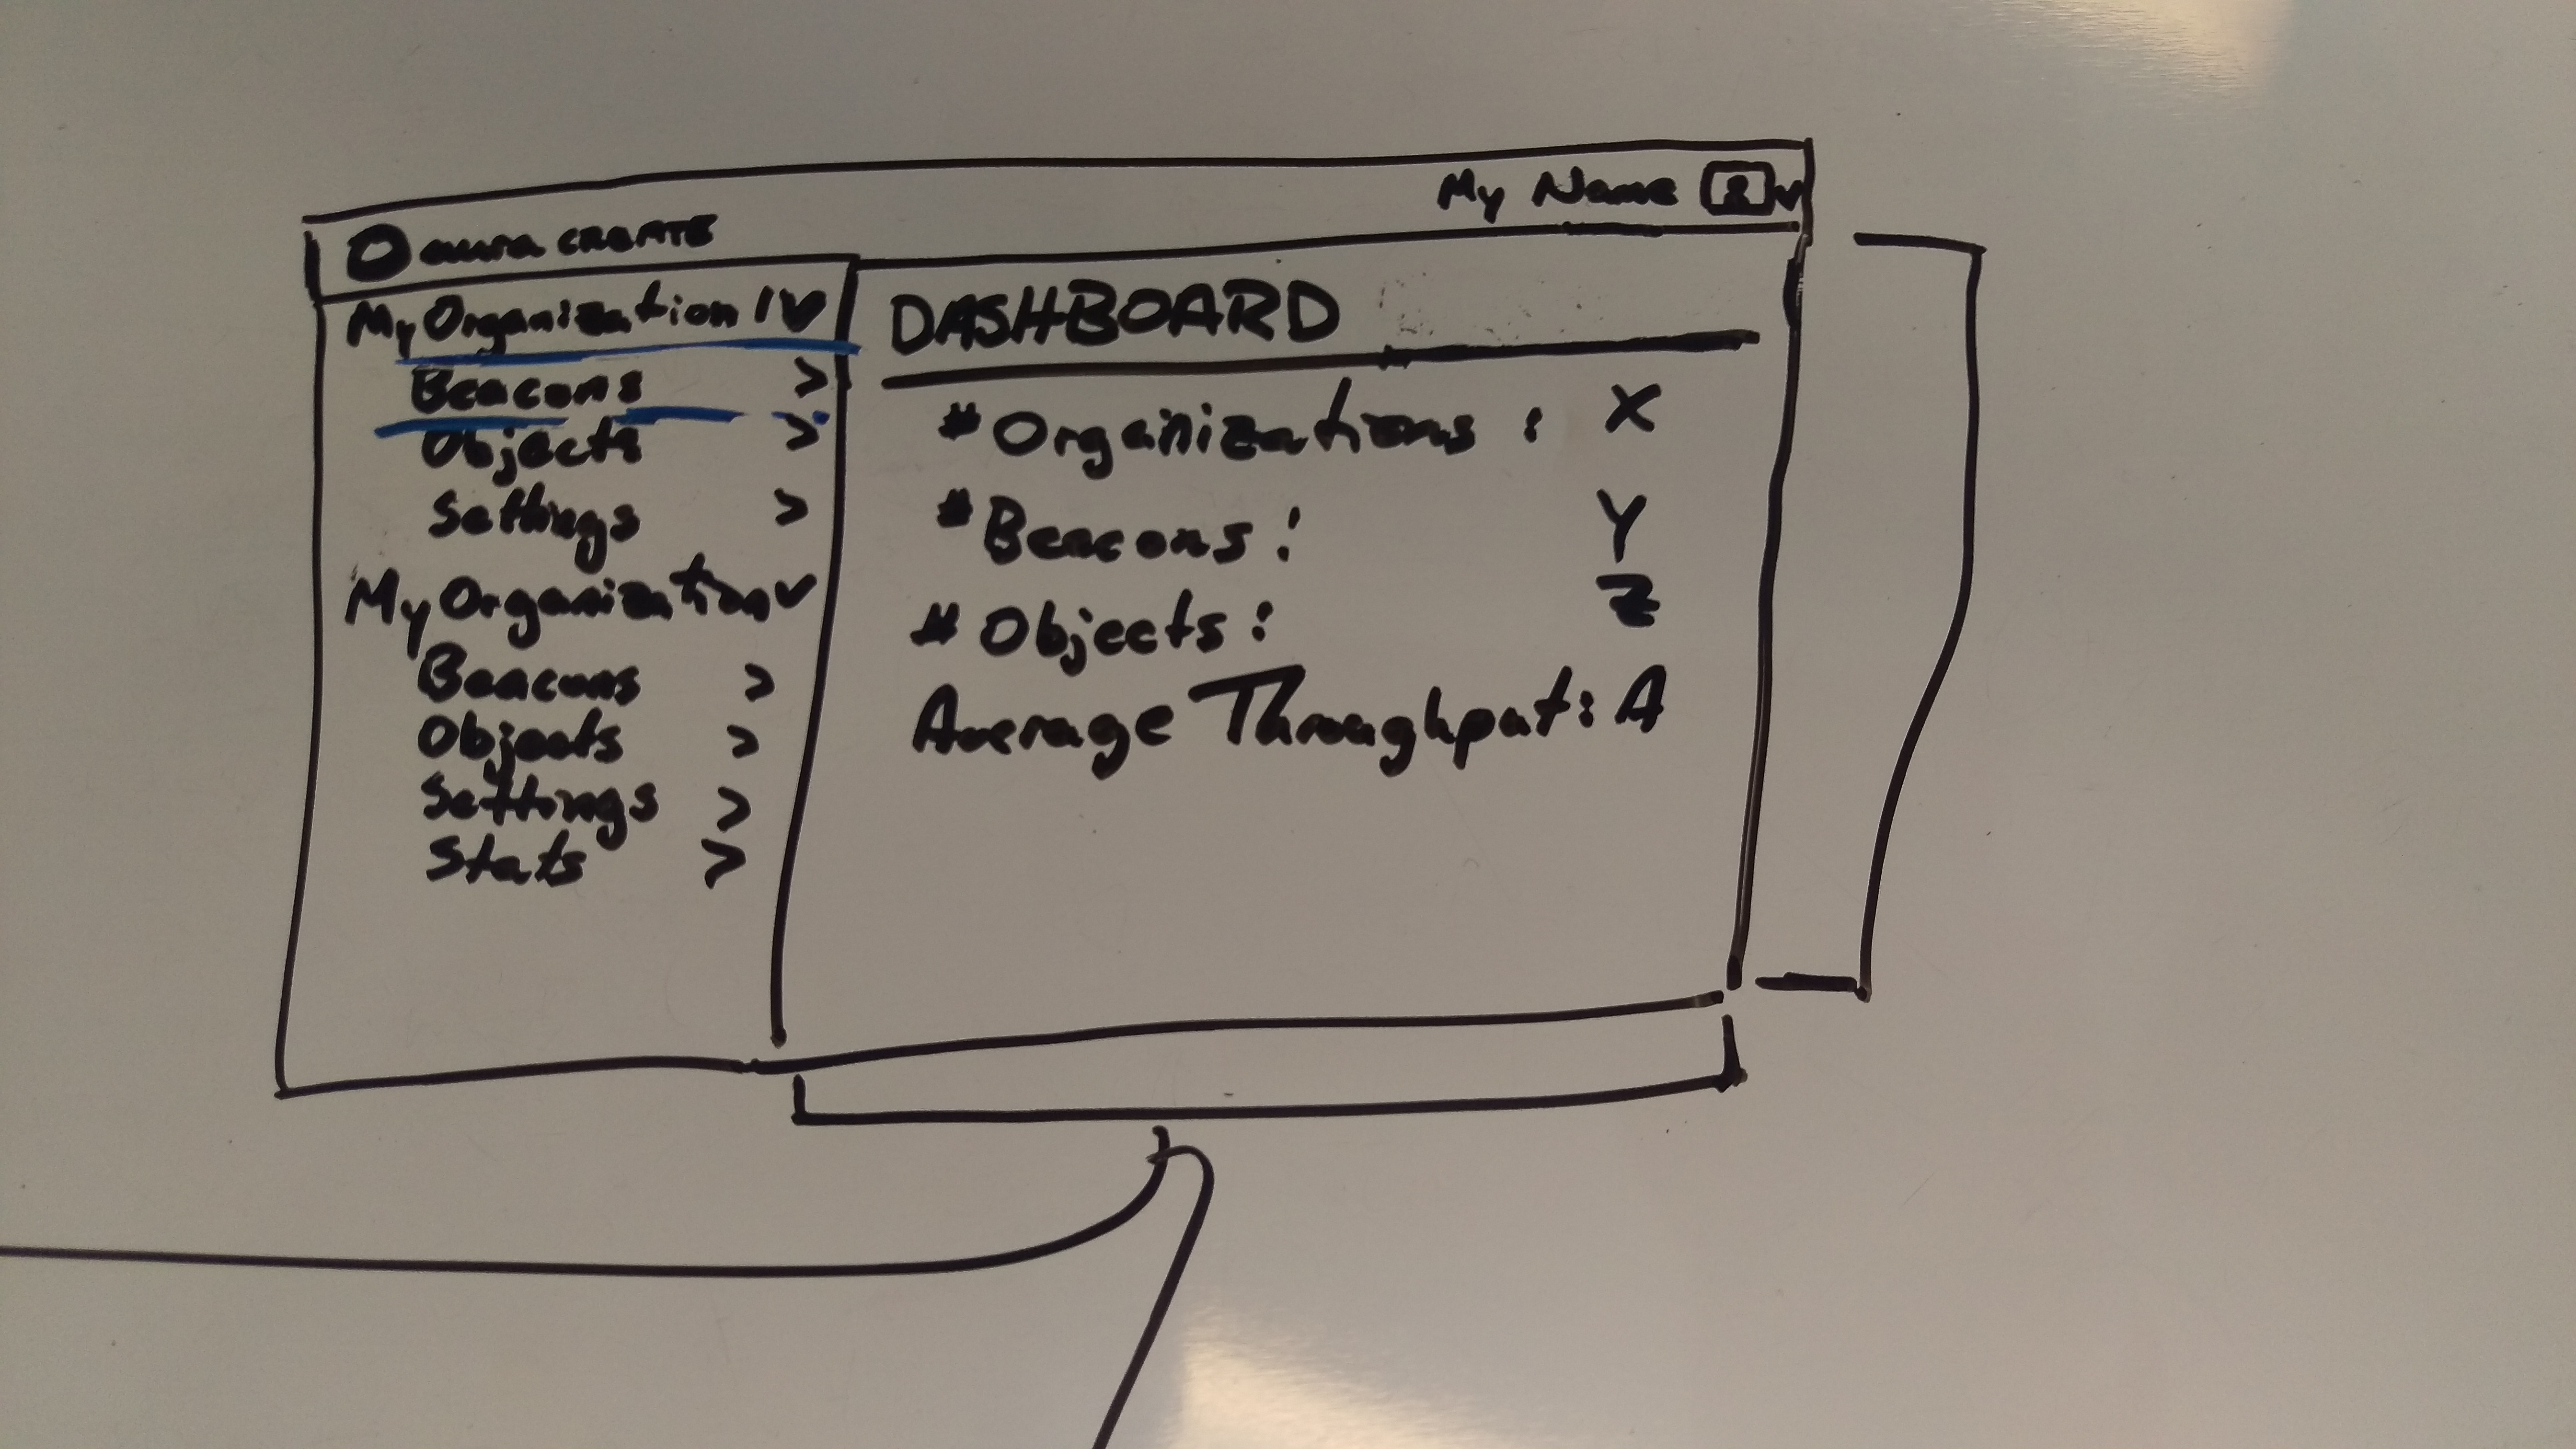 My Name
aura CREATE
My Organization 1 v
Beacons >
Objects >
Settings >
My Organization v
Beacons >
Objects >
Settings >
Stats >
DASHBOARD
# Organizations : X
# Beacons : Y
# Objects : Z
Average Throughput : A